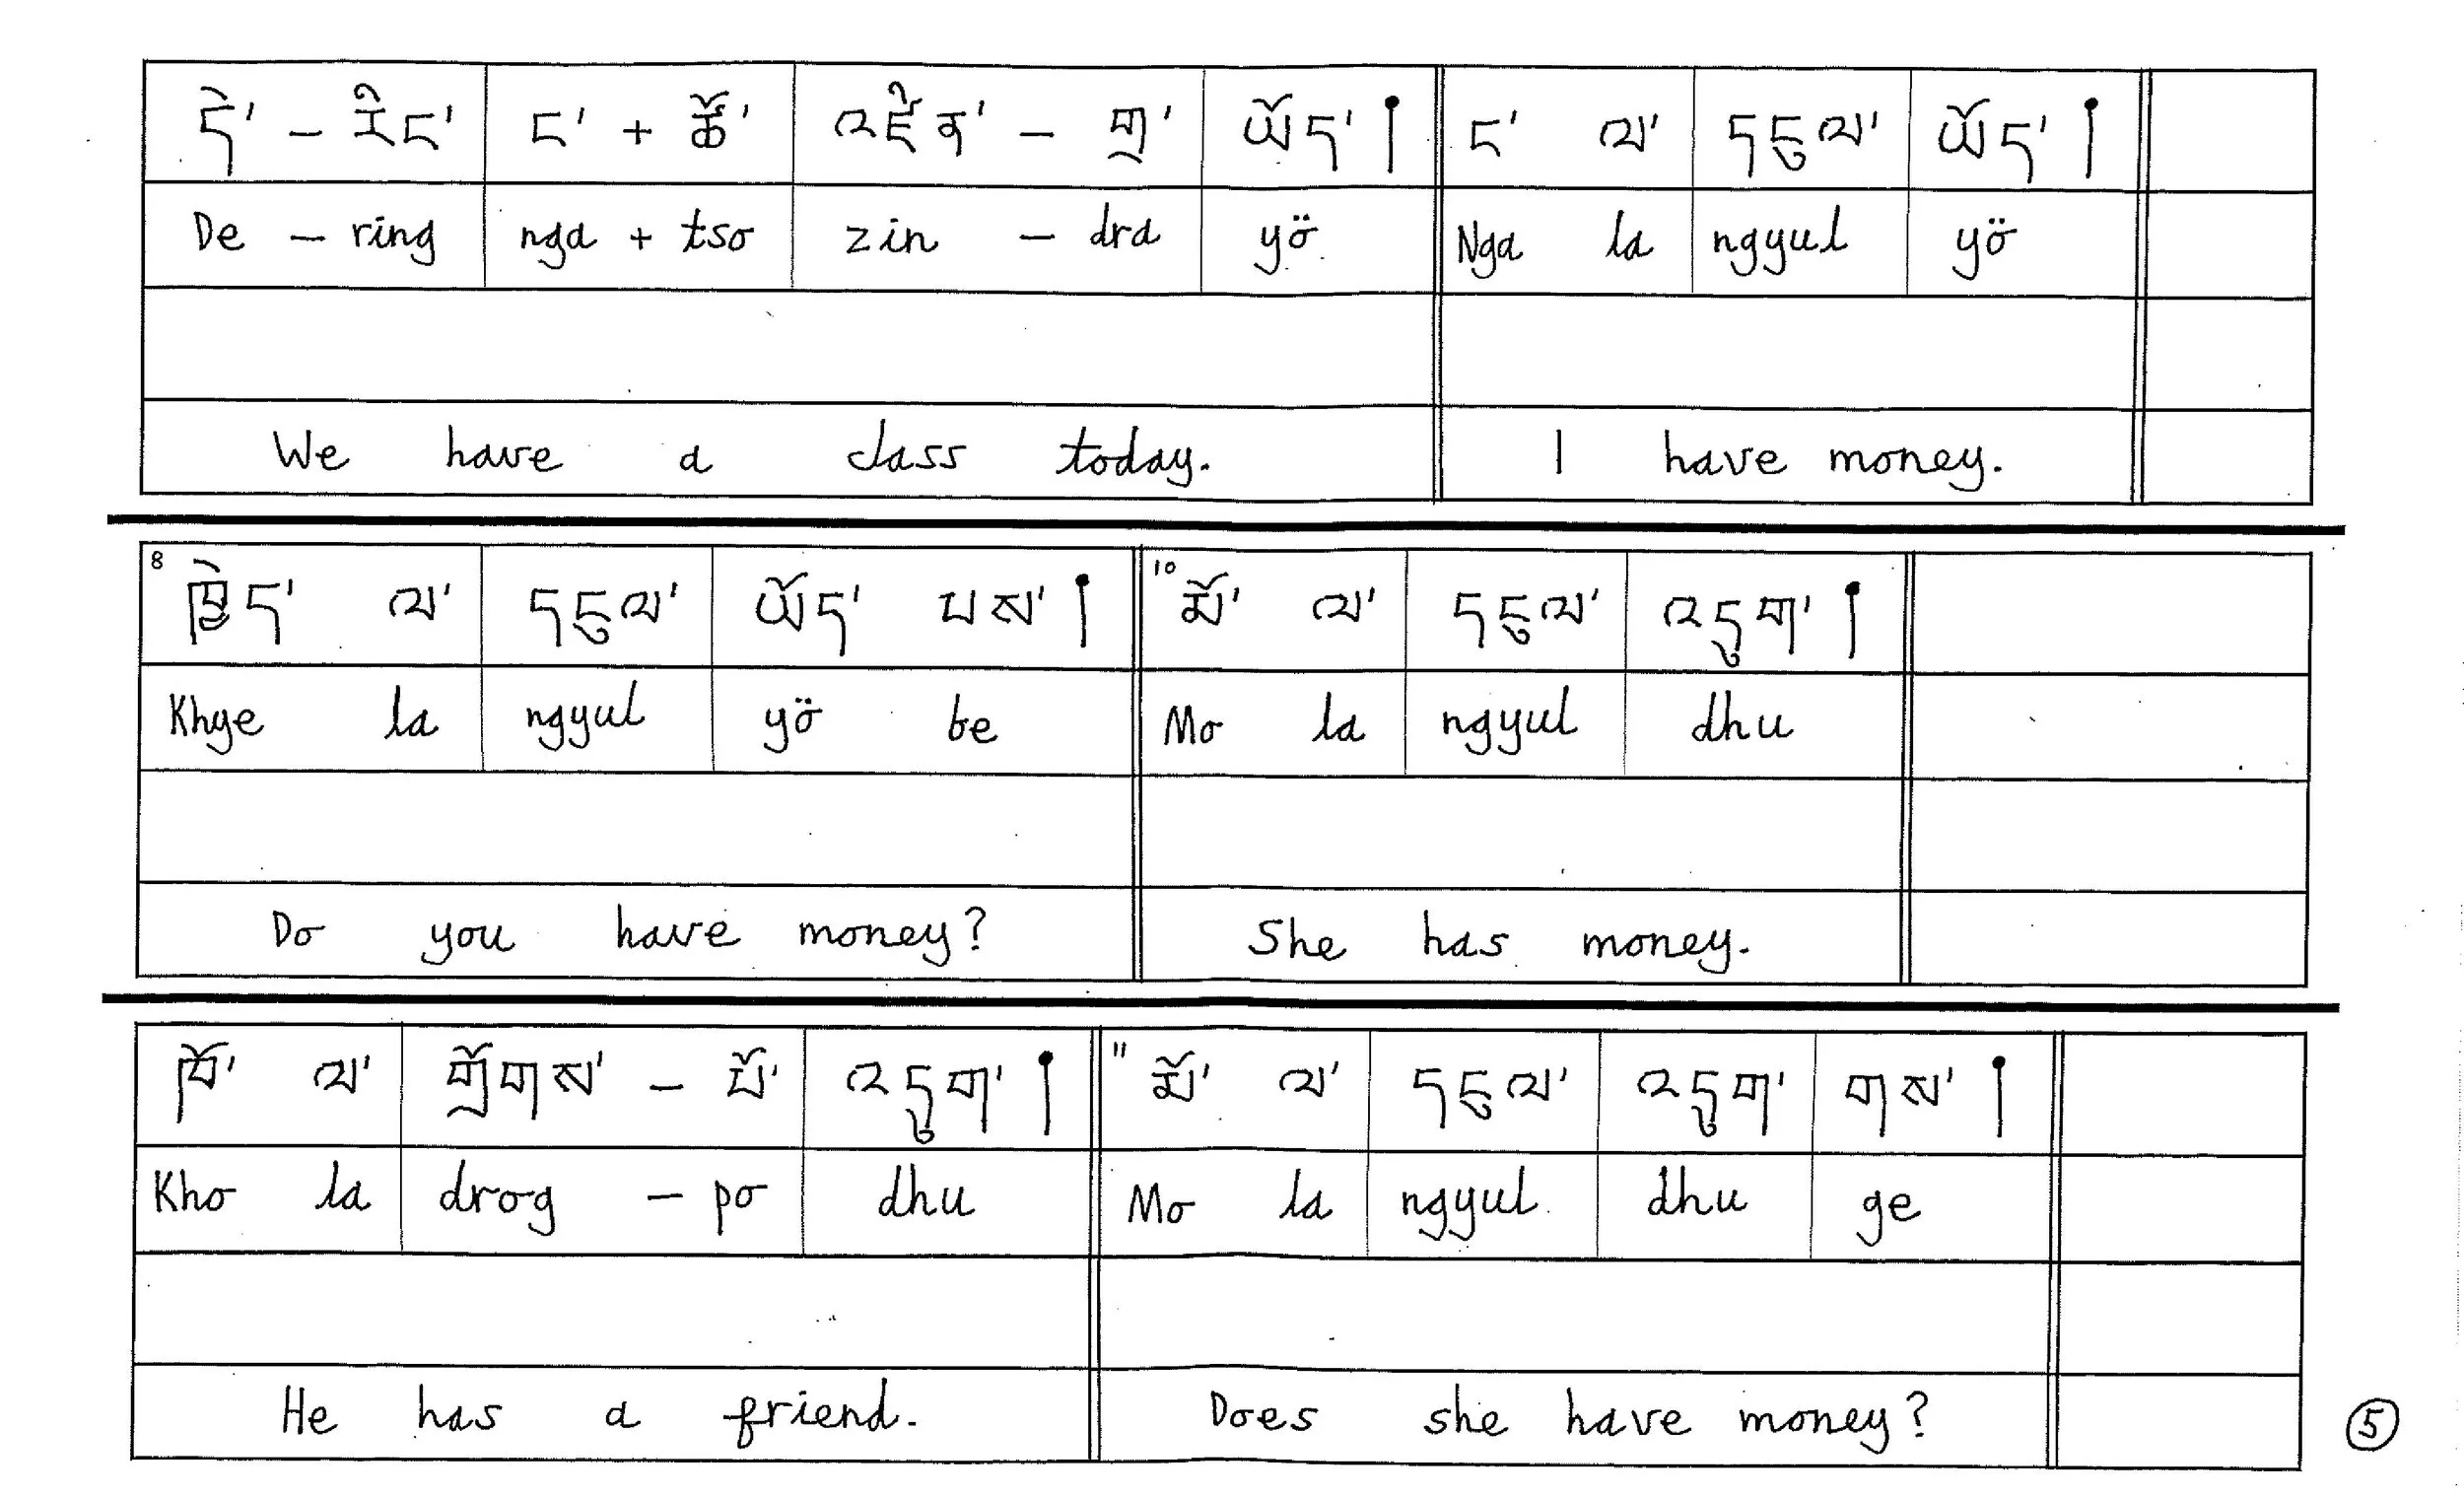 དེ་ - རིང་ ང་ + ཚོ་ འཛིན་ - གྲ་ ཡོད་། ང་ ལ་ དངུལ་ ཡོད་།
De - ring nga + tso zin - dra yö Nga la ngyul yö
We have a class today. I have money.
8 ཁྱེད་ ལ་ དངུལ་ ཡོད་ པས་། 10 མོ་ ལ་ དངུལ་ འདུག་།
Khye la ngyul yö be Mo la ngyul dhu
Do you have money? She has money.
ཁོ་ ལ་ གྲོགས་ - པོ་ འདུག་། 11 མོ་ ལ་ དངུལ་ འདུག་ གས་།
Kho la drog - po dhu Mo la ngyul dhu ge
He has a friend. Does she have money?
5